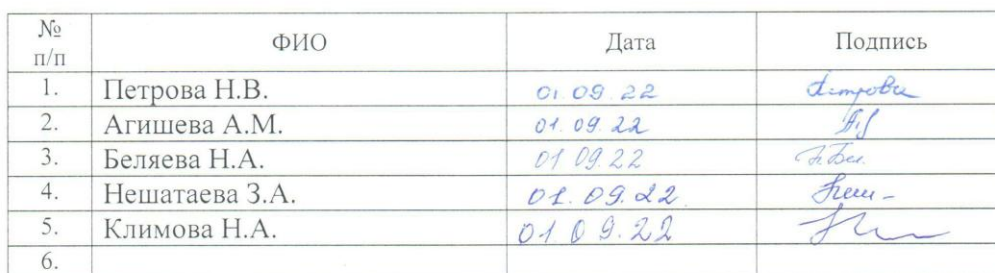 № п/п ФИО Дата Подпись
1. Петрова Н.В. 01.09.22 Петрова
2. Агишева А.М. 01.09.22
3. Беляева Н.А. 01 09.22
4. Нешатаева З.А. 01.09.22
5. Климова Н.А. 01 09.22
6.